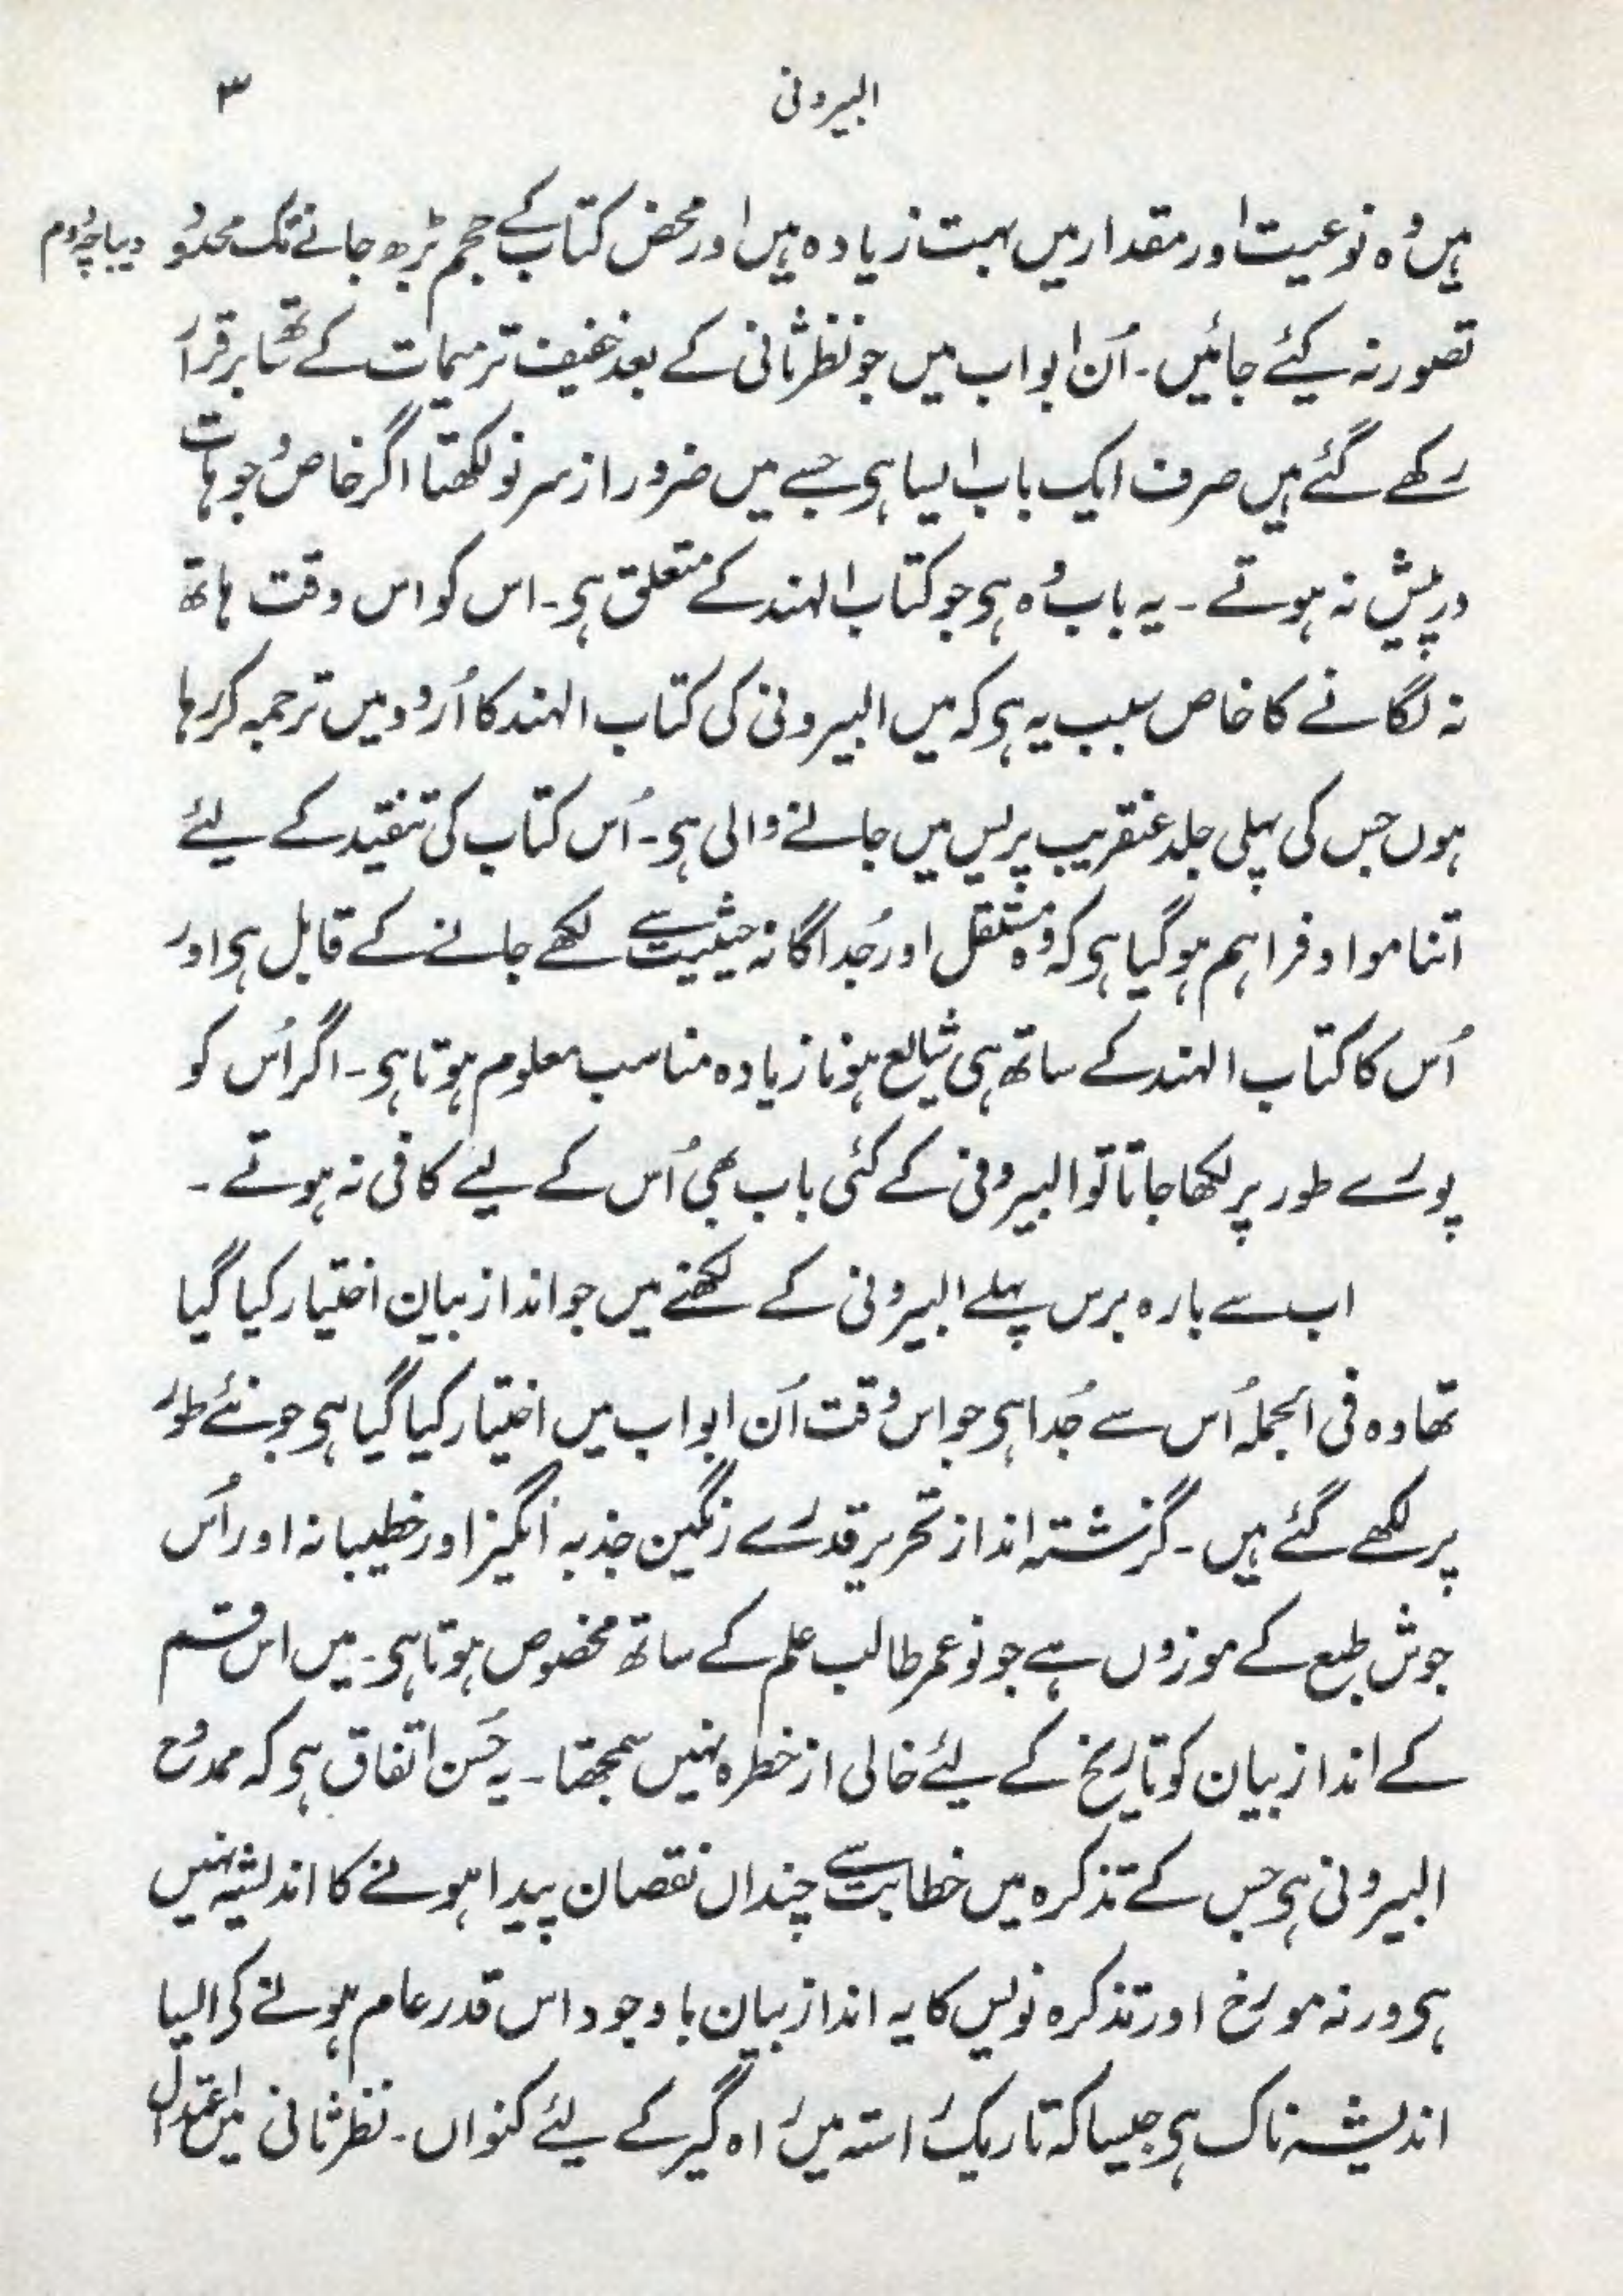 البیرونی
۳
ہیں وُہ نوعیت اور مقدار میں بہت زیادہ ہیں اور محض کتاب کے حجم بڑھ جانے تک محدُود
دیباچۂ دوم
تصور نہ کیئے جائیں۔ اُن ابواب میں جو نظر ثانی کے بعد خفیف ترمیمات کے ساتھ برقرار
رکھے گئے ہیں صرف ایک باب ایسا ہی جسے میں ضرور از سر نو لکھتا اگر خاص وُجوہات
درپیش نہ ہوتے۔ یہ باب وُہ ہی جو کتاب الہند کے متعلق ہی۔ اس کو اس وقت ہاتھ
نہ لگانے کا خاص سبب یہ ہی کہ میں البیرونی کی کتاب الہند کا اُردو میں ترجمہ کر رہا
ہوں جس کی پہلی جلد عنقریب پریس میں جانے والی ہی۔ اُس کتاب کی تنقید کے لیئے
اتنا مواد فراہم ہو گیا ہی کہ وُہ مستقل اور جُداگانہ حیثیت سے لکھے جانے کے قابل ہی اور
اُس کا کتاب الہند کے ساتھ ہی شایع ہونا زیادہ مناسب معلوم ہوتا ہی۔ اگر اُس کو
پورے طور پر لکھا جاتا تو البیرونی کے کئی باب بھی اُس کے لیے کافی نہ ہوتے۔
اب سے بارہ برس پہلے البیرونی کے لکھنے میں جو انداز بیان اختیار کیا گیا
تھا وہ فی الجملہ اُس سے جُدا ہی جو اس وُقت اُن ابواب میں اختیار کیا گیا ہی جو نئے طور
پر لکھے گئے ہیں۔ گزشتہ انداز تحریر قدرے رنگین جذبہ انگیز اور خطیبانہ اور اُس
جوش طبع کے موزوں ہے جو نوعمر طالب علم کے ساتھ مخصوص ہوتا ہی۔ میں اس قسم
کے انداز بیان کو تاریخ کے لیئے خالی از خطرہ نہیں سمجھتا۔ یہ حُسن اتفاق ہی کہ ممدُوح
البیرونی ہی جس کے تذکرہ میں خطابت سے چنداں نقصان پیدا ہونے کا اندیشہ نہیں
ہی ورنہ مورخ اور تذکرہ نویس کا یہ انداز بیان باوجود اس قدر عام ہونے کے ایسا
اندیشہ ناک ہی جیسا کہ تاریک راستہ میں راہ گیر کے لیئے کنواں۔ نظر ثانی میں اعتدال